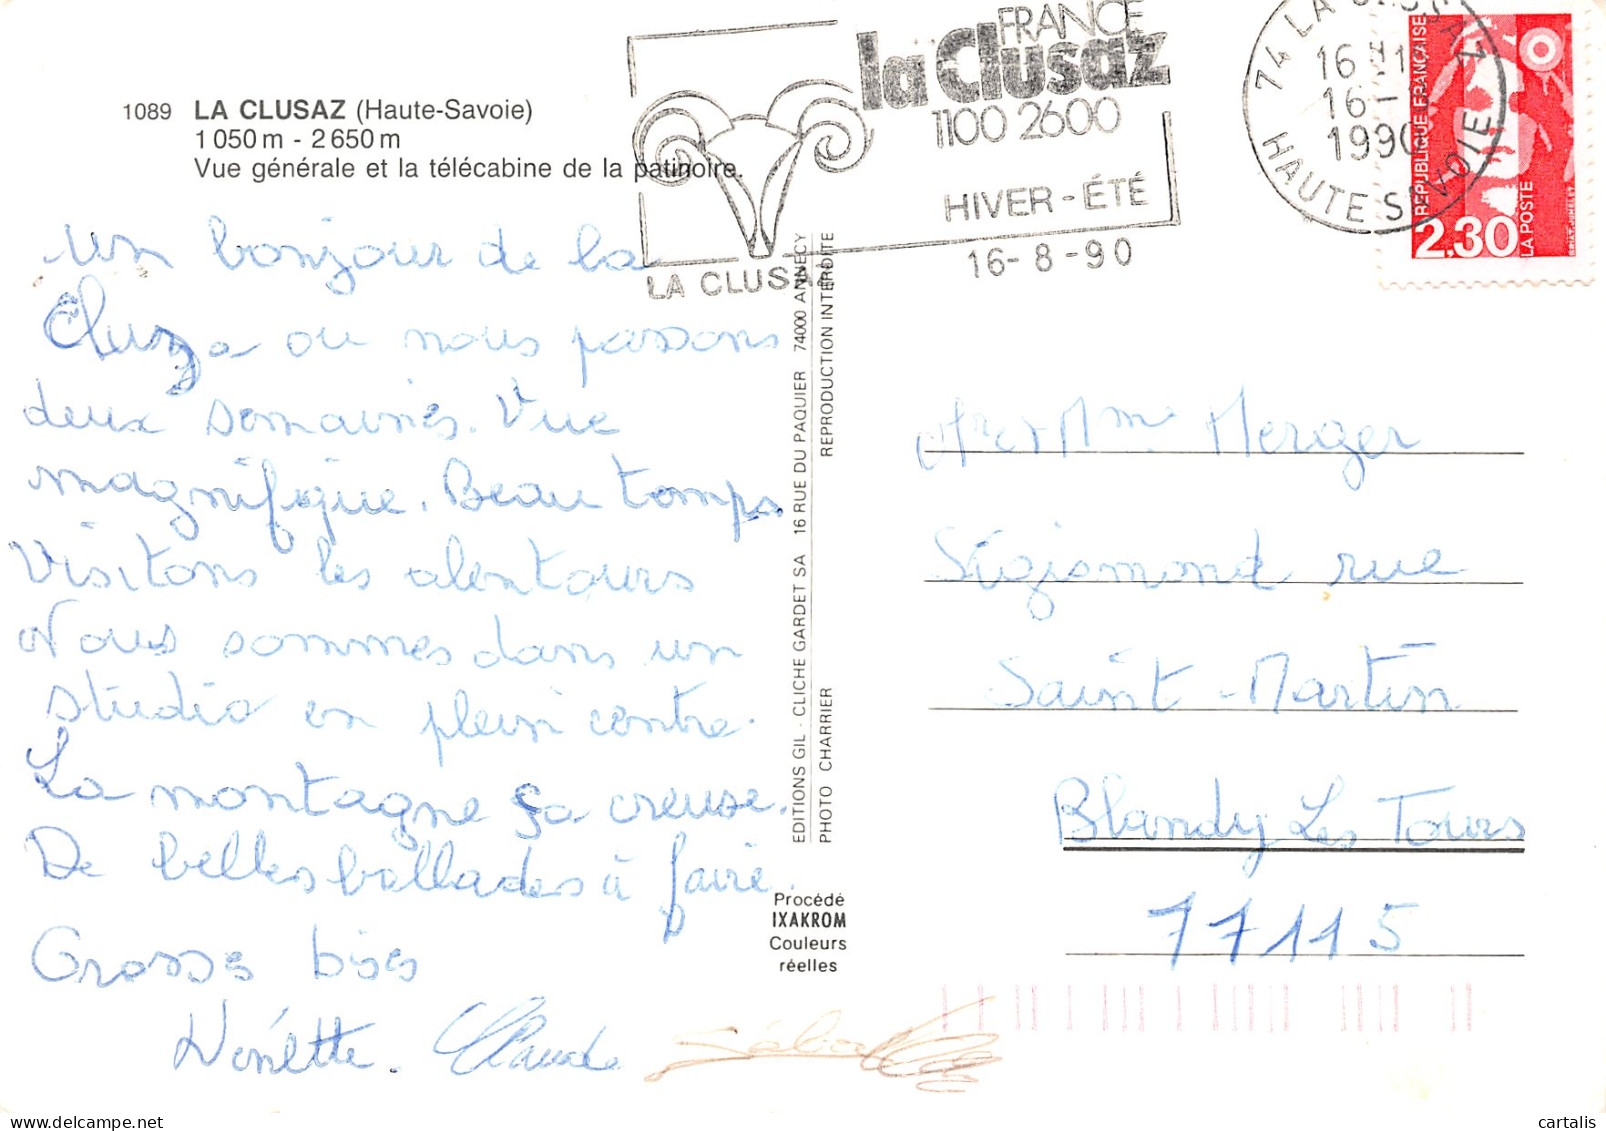 1089 LA CLUSAZ (Haute-Savoie)
1050 m - 2650 m
Vue générale et la télécabine de la patinoire.
FRANCE
la Clusaz
1100 2600
HIVER - ÉTÉ
LA CLUSAZ
16-8-90
74 LA CLUSAZ
16 H
16 -
1990
HAUTE SAVOIE
REPUBLIQUE FRANÇAISE
2,30
LA POSTE
Un bonjour de la
Cluza ou nous passons
deux semaines. Vue
magnifique. Beau temps
Visitons les alentours
Nous sommes dans un
studio en plein centre.
La montagne ça creuse.
De belles ballades à faire.
Grosses bises
Claude
EDITIONS GIL - CLICHE GARDET SA 16 RUE DU PAQUIER 74000 ANNECY
PHOTO CHARRIER REPRODUCTION INTERDITE
Procédé
IXAKROM
Couleurs
réelles
Mr et Mme Merger
Sigismond rue
Saint-Martin
Blandy Les Tours
77115
cartalis